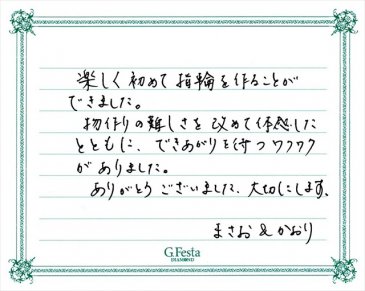 楽しく初めて指輪を作ることが
できました。
物作りの難しさを改めて体感した
とともに、できあがりを待つワクワク
がありました。
ありがとうございました、大切にします。
まさお & かおり
G.Festa
DIAMOND